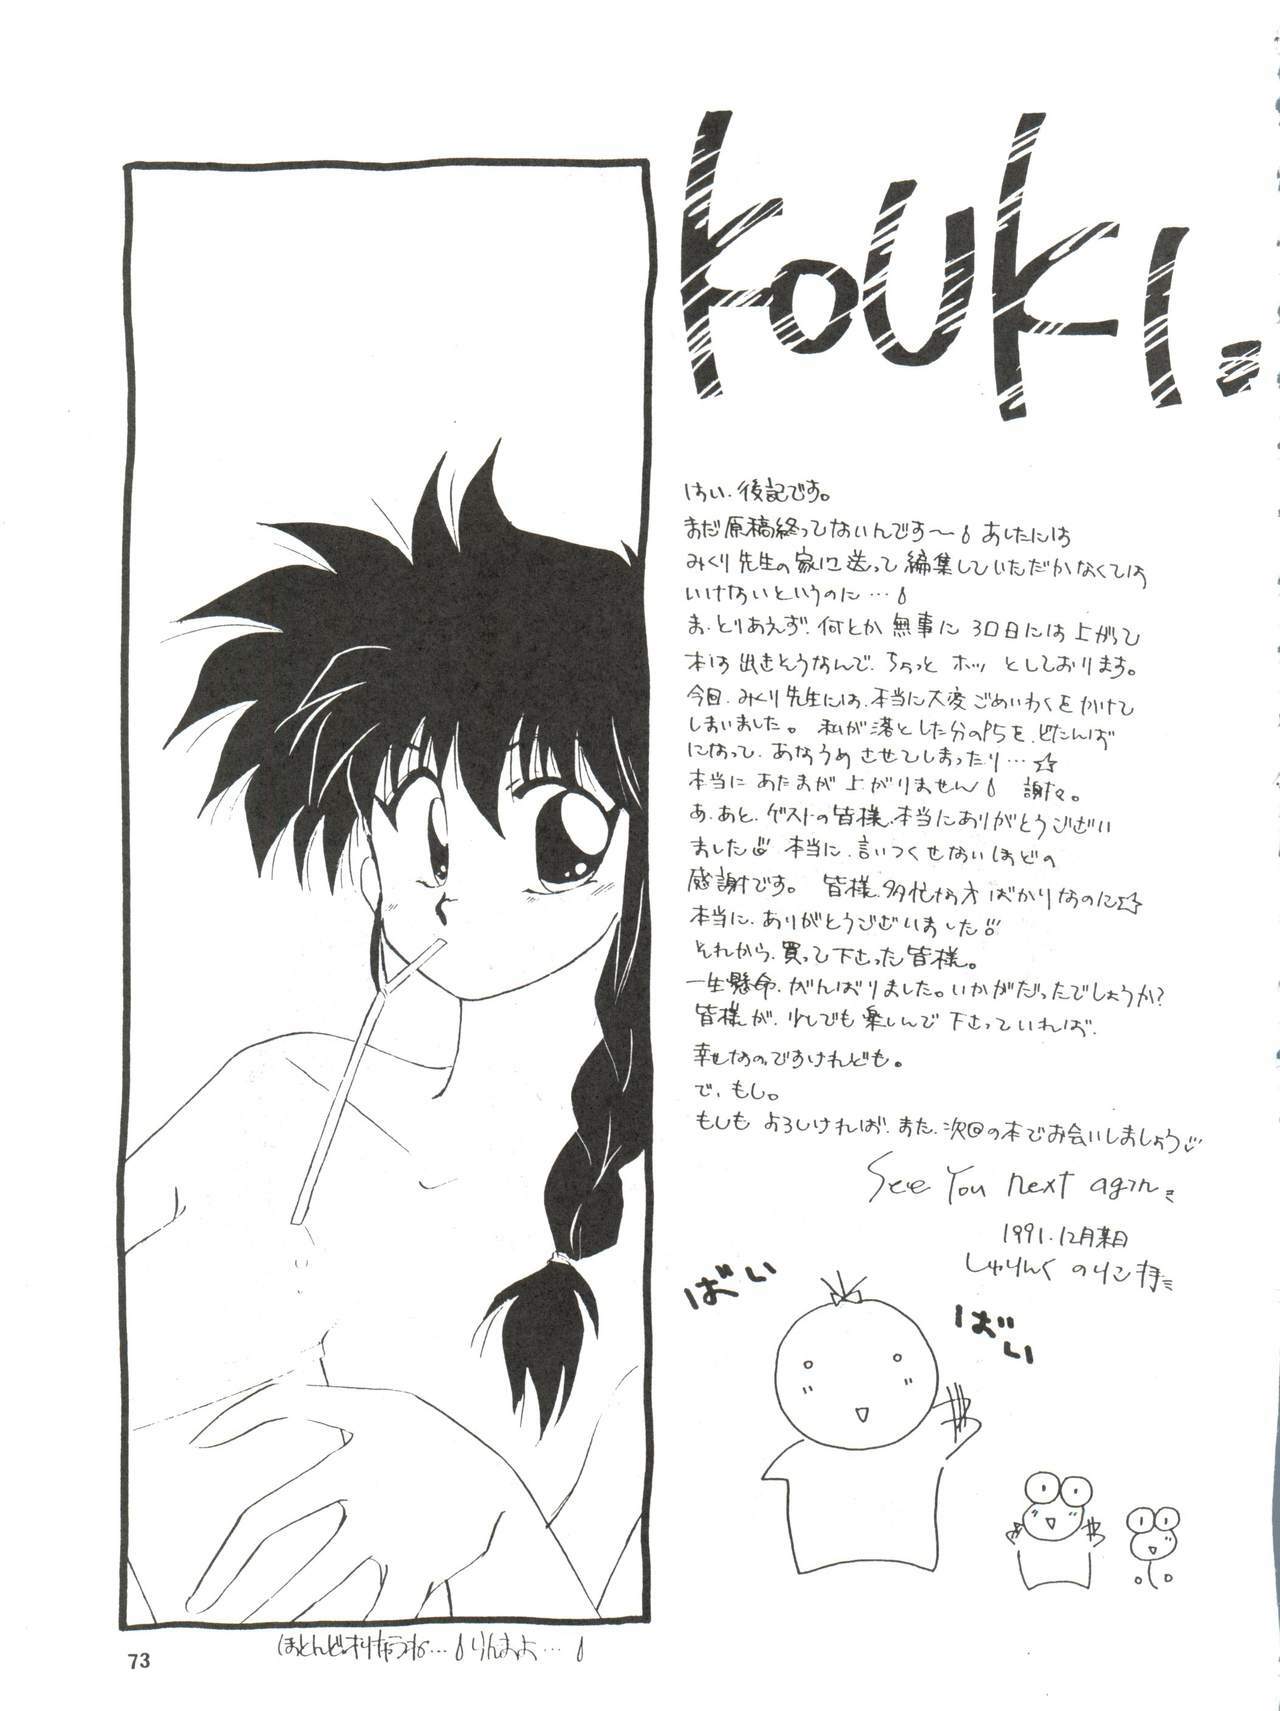 KOUKI.
はい、後記です。
まだ原稿終ってないんです〜 あしたには
みくり先生の家に送って編集していただかなくては
いけないというのに…
ま、とりあえず、何とか無事に30日には上がって
本は出きそうなんで、ちょっと ホッ としております。
今回、みくり先生には、本当に大変ごめいわくをかけて
しまいました。 私が落とした分のP5を、どたんば
になって、あなうめさせてしまったり…☆
本当に あたまが 上がりません 謝々。
あ、あと、ゲストの皆様、本当にありがとうござい
ました 本当に、言いつくせないほどの
感謝です。 皆様、多忙な方ばかりなのに☆
本当に、ありがとうございました
それから、買って下さった皆様。
一生懸命、がんばりました。いかがだったでしょうか?
皆様が、少しでも楽しんで下さっていれば、
幸せなのですけれども。
で、もし。
もしも よろしければ、また、次回の本でお会いしましょう
See You next again
1991.12月末日
しゅりんく のりこ
ばい
ばい
ほとんどオリキャラね… らんまよ…
73